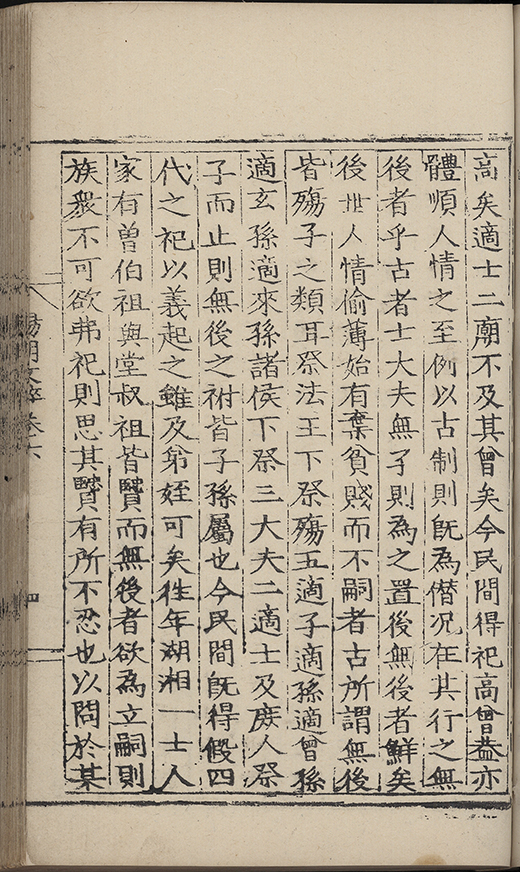 高矣適士二廟不及其曾矣今民間得祀高曾葢亦
體順人情之至例以古制則旣為僭况在其行之無
後者乎古者士大夫無子則為之置後無後者鮮矣
後世人情偷薄始有棄貧賤而不嗣者古所謂無後
皆殤子之類耳祭法王下祭殤五適子適孫適曾孫
適玄孫適來孫諸侯下祭三大夫二適士及庻人祭
子而止則無後之祔皆子孫屬也今民間旣得假四
代之祀以義起之雖及弟姪可矣徃年湖湘一士人
家有曽伯祖與堂叔祖皆賢而無後者欲為立嗣則
族衆不可欲弗祀則思其賢有所不忍也以問於某
陽明文粹卷六
四